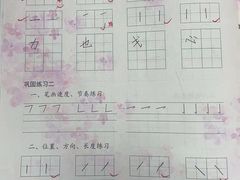 力 也 戈 心
巩固练习二
一、笔画速度、节奏练习
二、位置、方向、长度练习